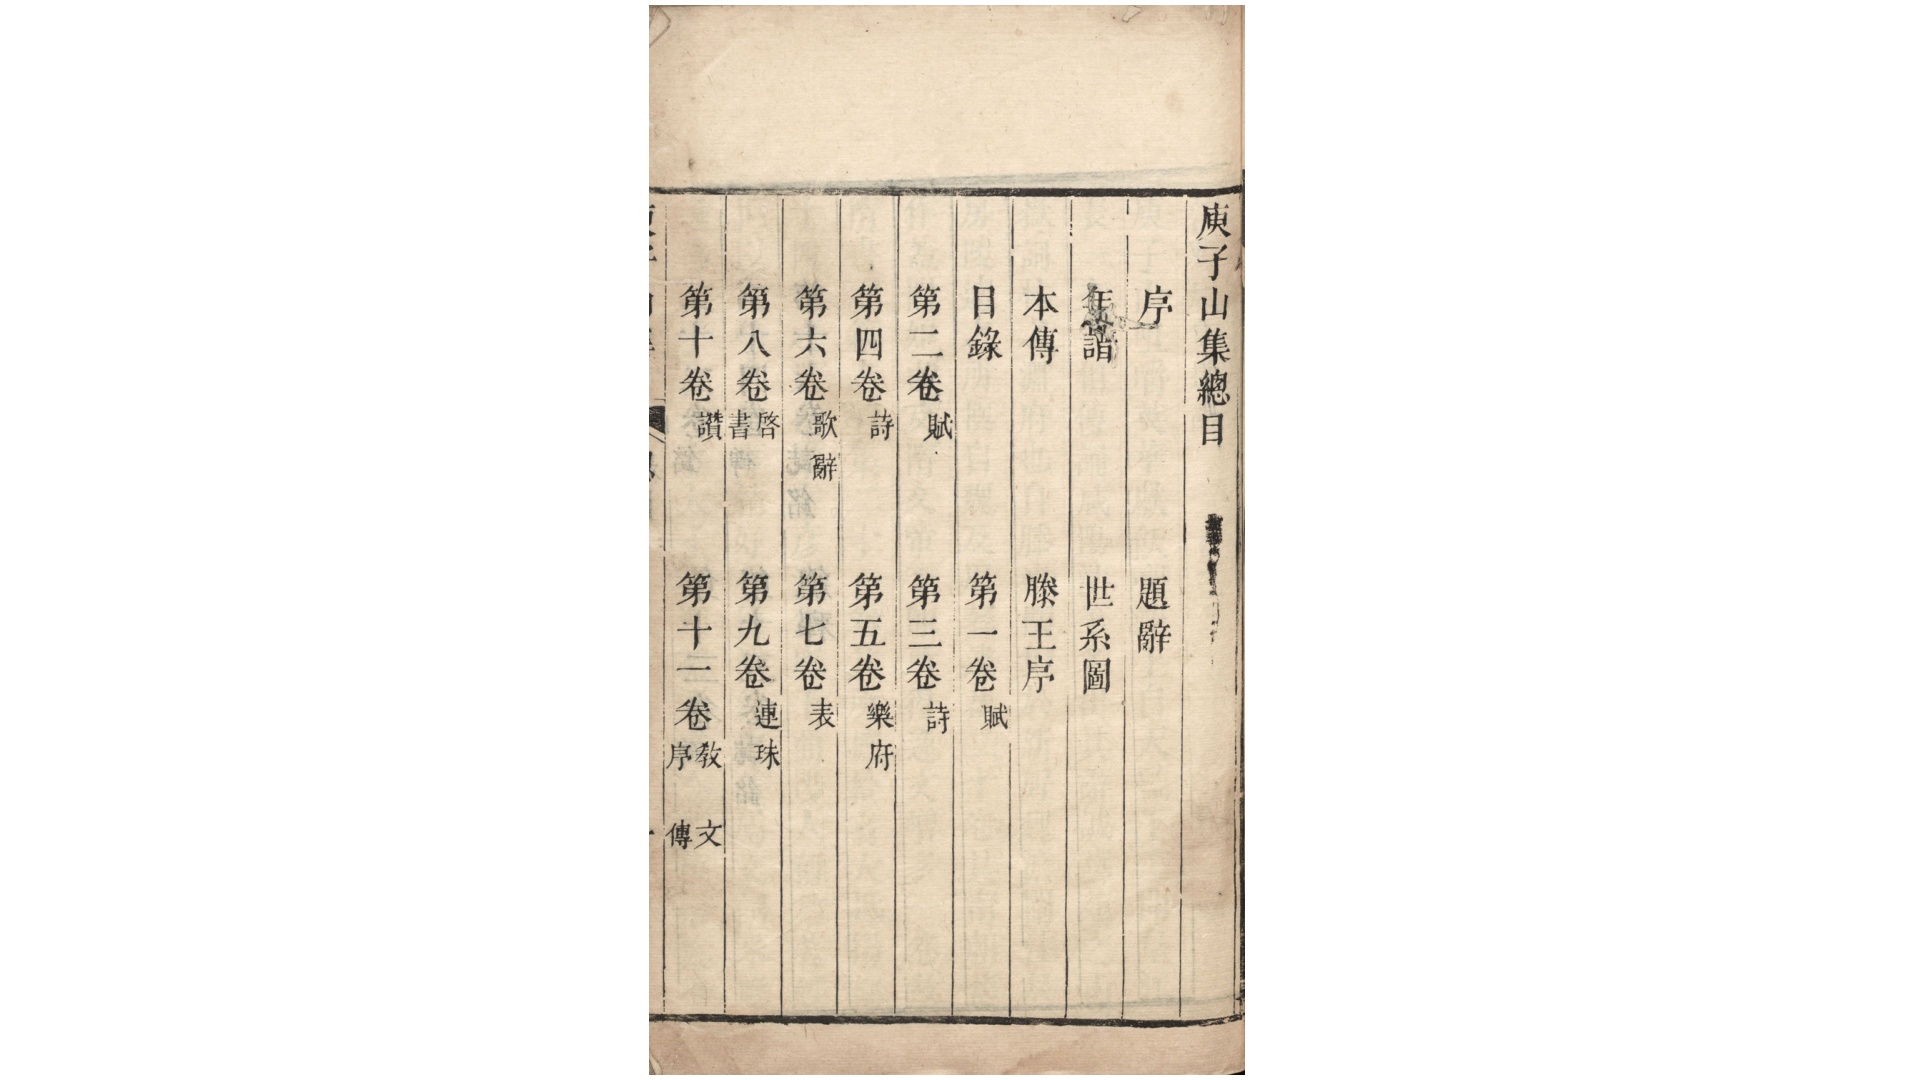 庾子山集總目
序 題辭
年譜 世系圖
本傳 滕王序
目錄 第一卷 賦
第二卷 賦 第三卷 詩
第四卷 詩 第五卷 樂府
第六卷 歌辭 第七卷 表
第八卷 啓書 第九卷 連珠
第十卷 讚 第十一卷 教文序傳